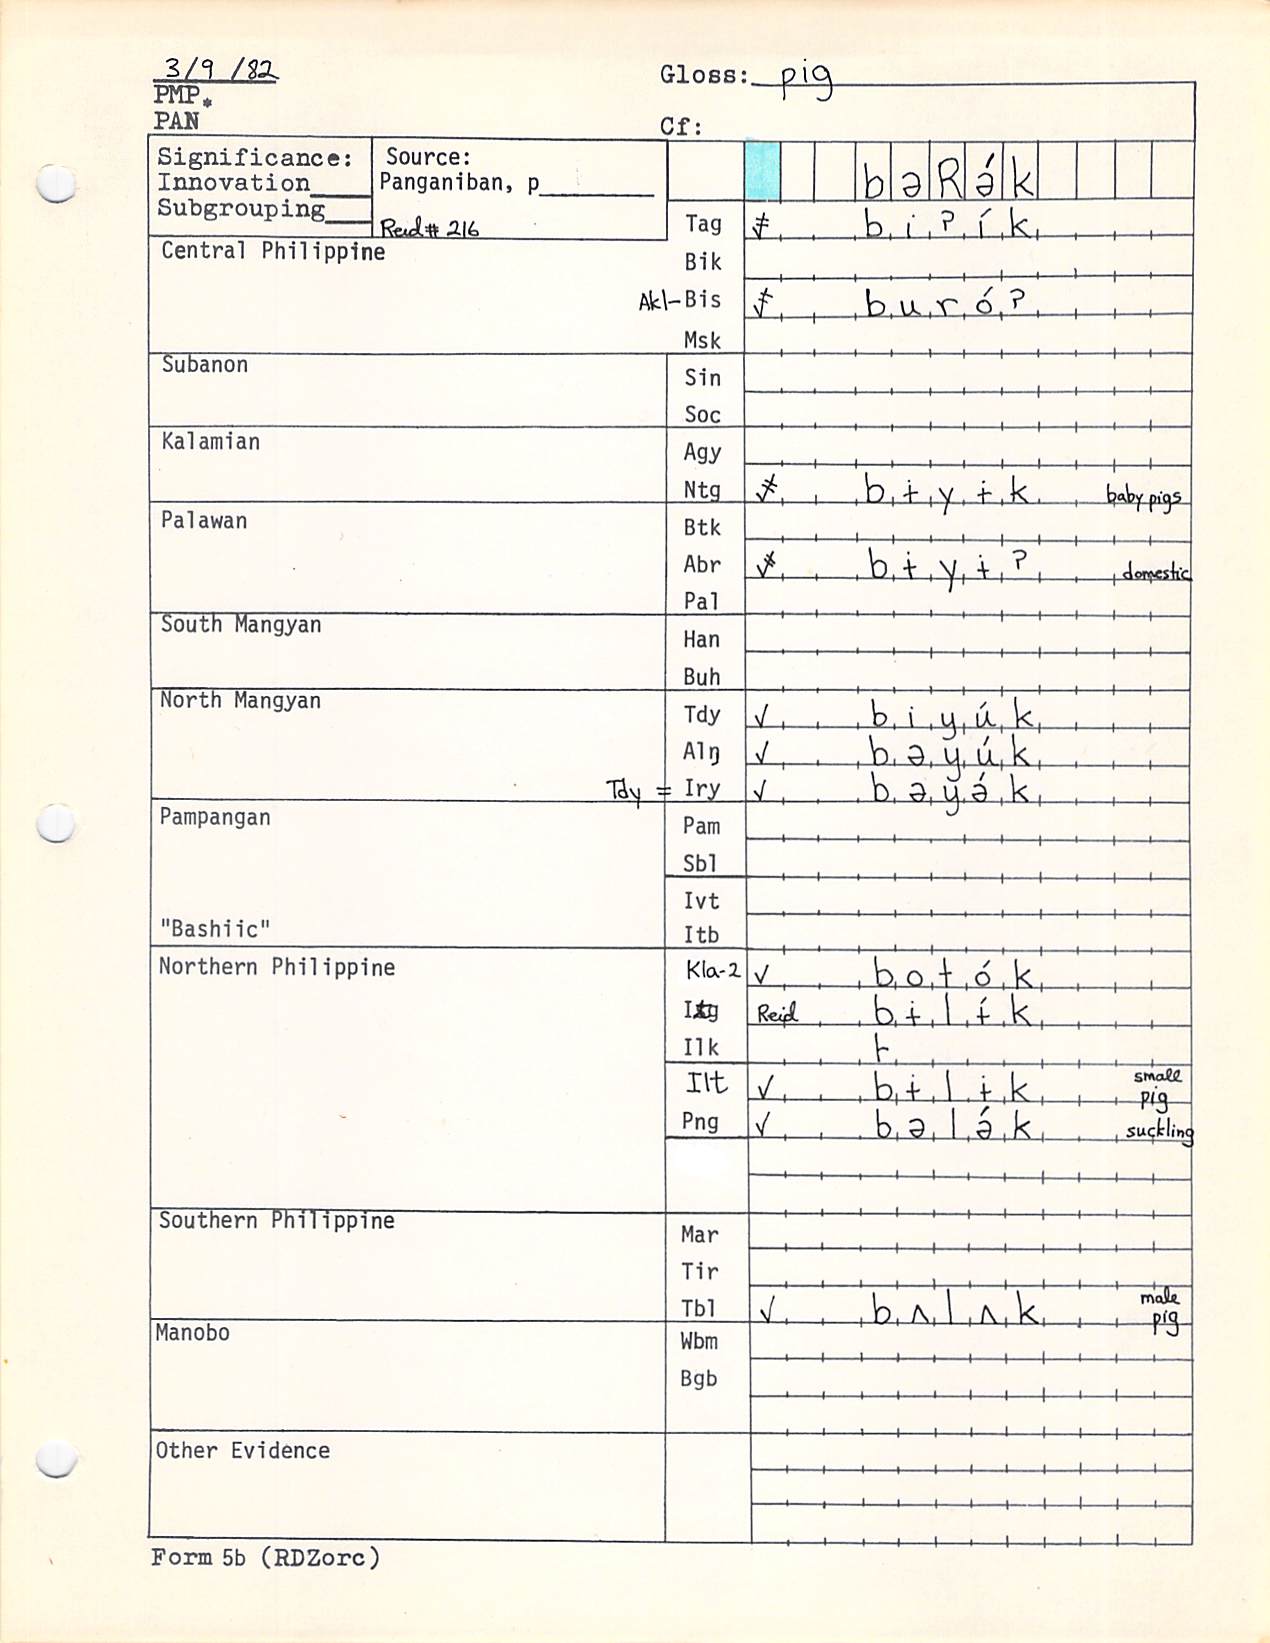 3/9/82
Gloss: pig
PMP*
PAN
Cf:
Significance:
Innovation
Subgrouping
Source:
Panganiban, p
Reid# 216
bəRə́k
Tag ≠ biʔík
Central Philippine
Bik
Akl-Bis buróʔ
Msk
Subanon
Sin
Soc
Kalamian
Agy
Ntg bɨyɨk baby pigs
Palawan
Btk
Abr bɨyɨʔ domestic
Pal
South Mangyan
Han
Buh
North Mangyan
Tdy ✓ biyúk
Alŋ ✓ bəyúk
Tdy = Iry ✓ bəyə́k
Pampangan
Pam
Sbl
Ivt
"Bashiic"
Itb
Northern Philippine
Kla-2 ✓ botók
Reid bɨlɨ́k
Ilk
Ilt ✓ bɨlɨk small pig
Png ✓ bələ́k suckling
Southern Philippine
Mar
Tir
Tbl ✓ bʌlʌk male pig
Manobo
Wbm
Bgb
Other Evidence
Form 5b (RDZorc)